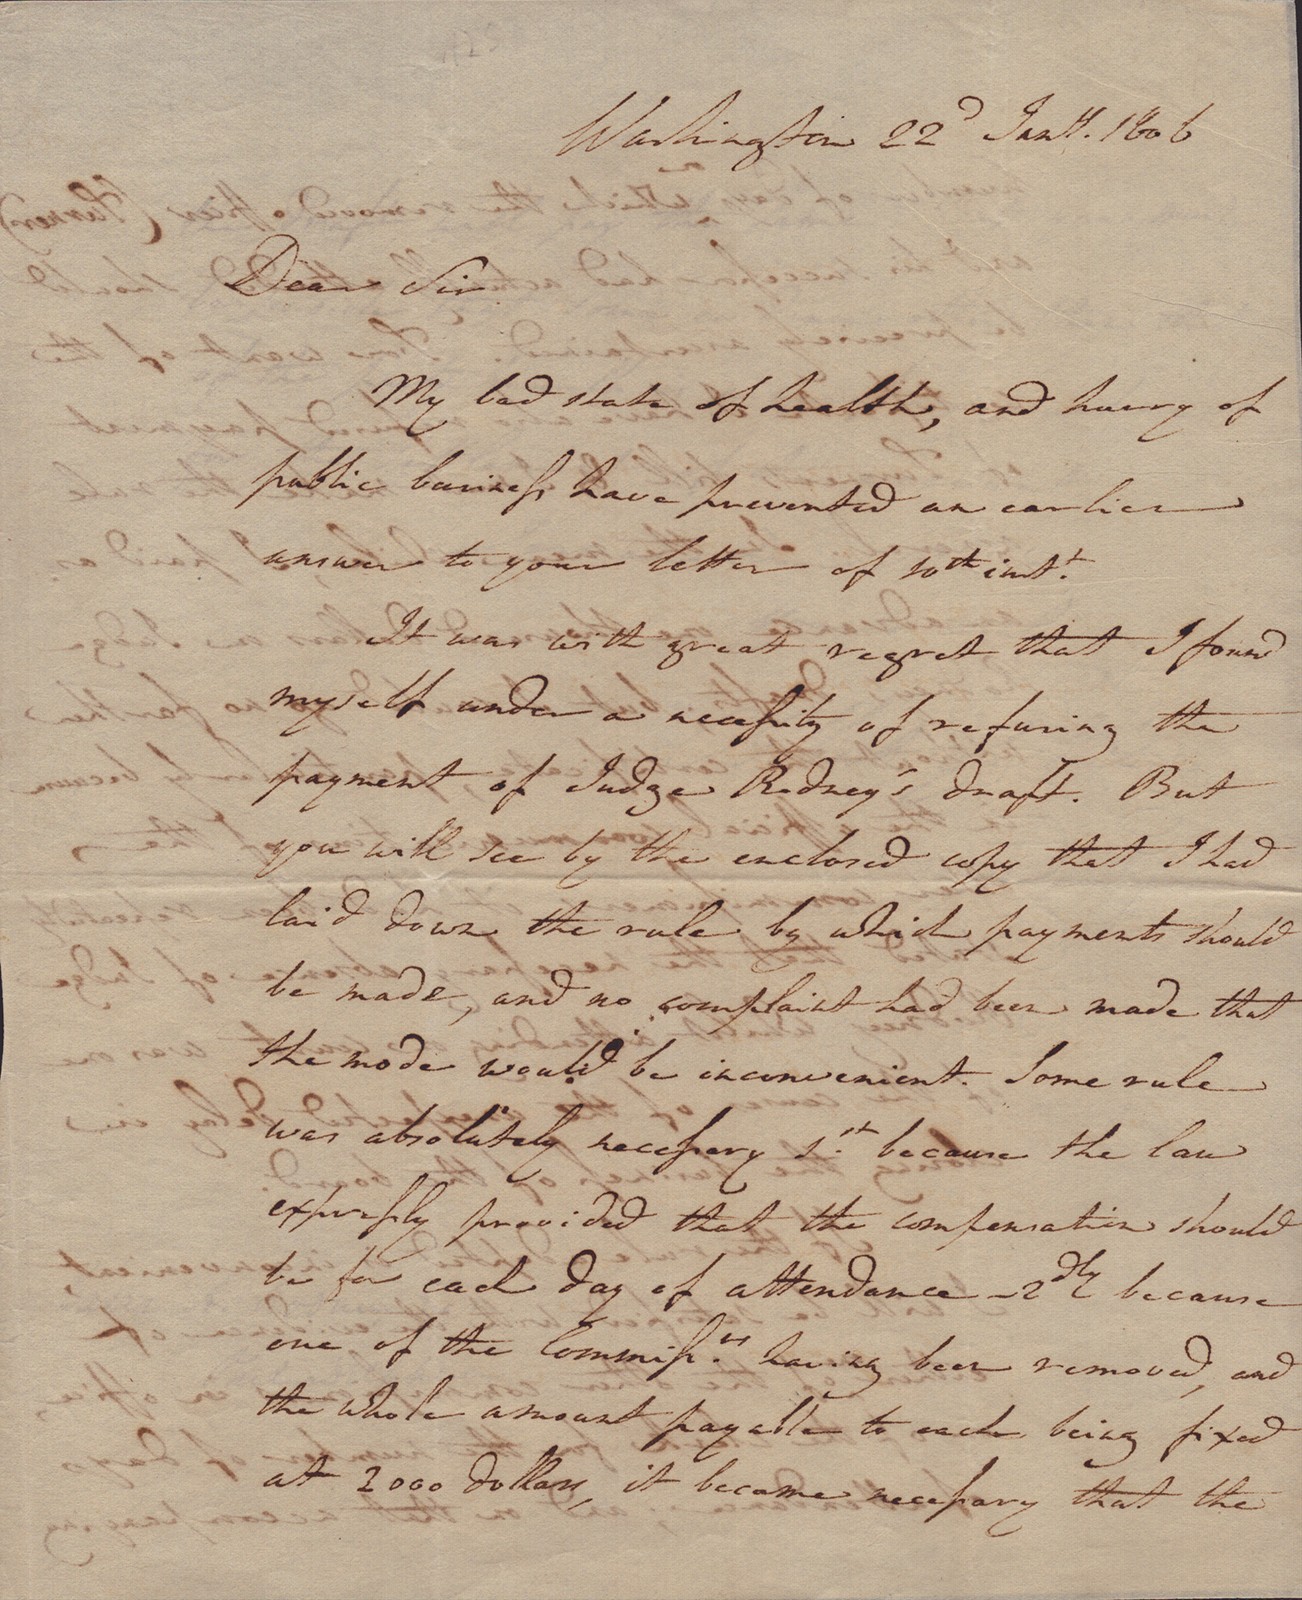 Washington 22d Jany. 1806
Dear Sir
My bad state of health, and hurry of
public business have prevented an earlier
answer to your letter of 10th inst.
It was with great regret that I found
myself under a necessity of refusing the
payment of Judge Rodney's draft. But
you will see by the enclosed copy that I had
laid down the rule by which payments should
be made, and no complaint had been made that
the mode would be inconvenient. Some rule
was absolutely necessary 1st. because the law
expressly provided that the compensation should
be for each day of attendance – 2dly because
one of the Commissrs. having been removed, and
the whole amount payable to each being fixed
at 2000 dollars, it became necessary that the